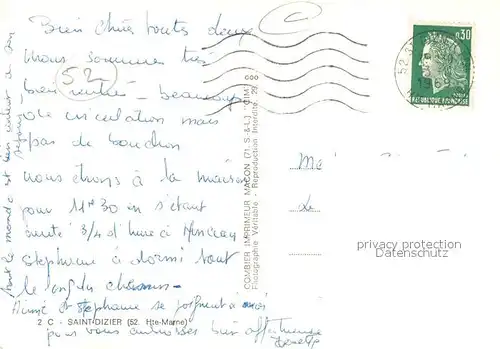 Bien chères toutes deux
Nous sommes très
bien rentré - beaucoup
de circulation mais
pas de bouchon
nous étions à la maison
pour 11h30 en s'étant
arrêté 3/4 d'heure à
Stephane a dormi tout
le long du chemin -
Aimé et Stephane se joignent à moi
pour vous embrasser bien affectueusement
tout le monde est bien content de son
52
2 C - SAINT-DIZIER (52. Hte-Marne)
COMBIER IMPRIMEUR MACON (71. S.-&-L.) "CIM"
Photographie Véritable - Reproduction Interdite.
0,30
REPUBLIQUE FRANCAISE
52
privacy protection
Datenschutz